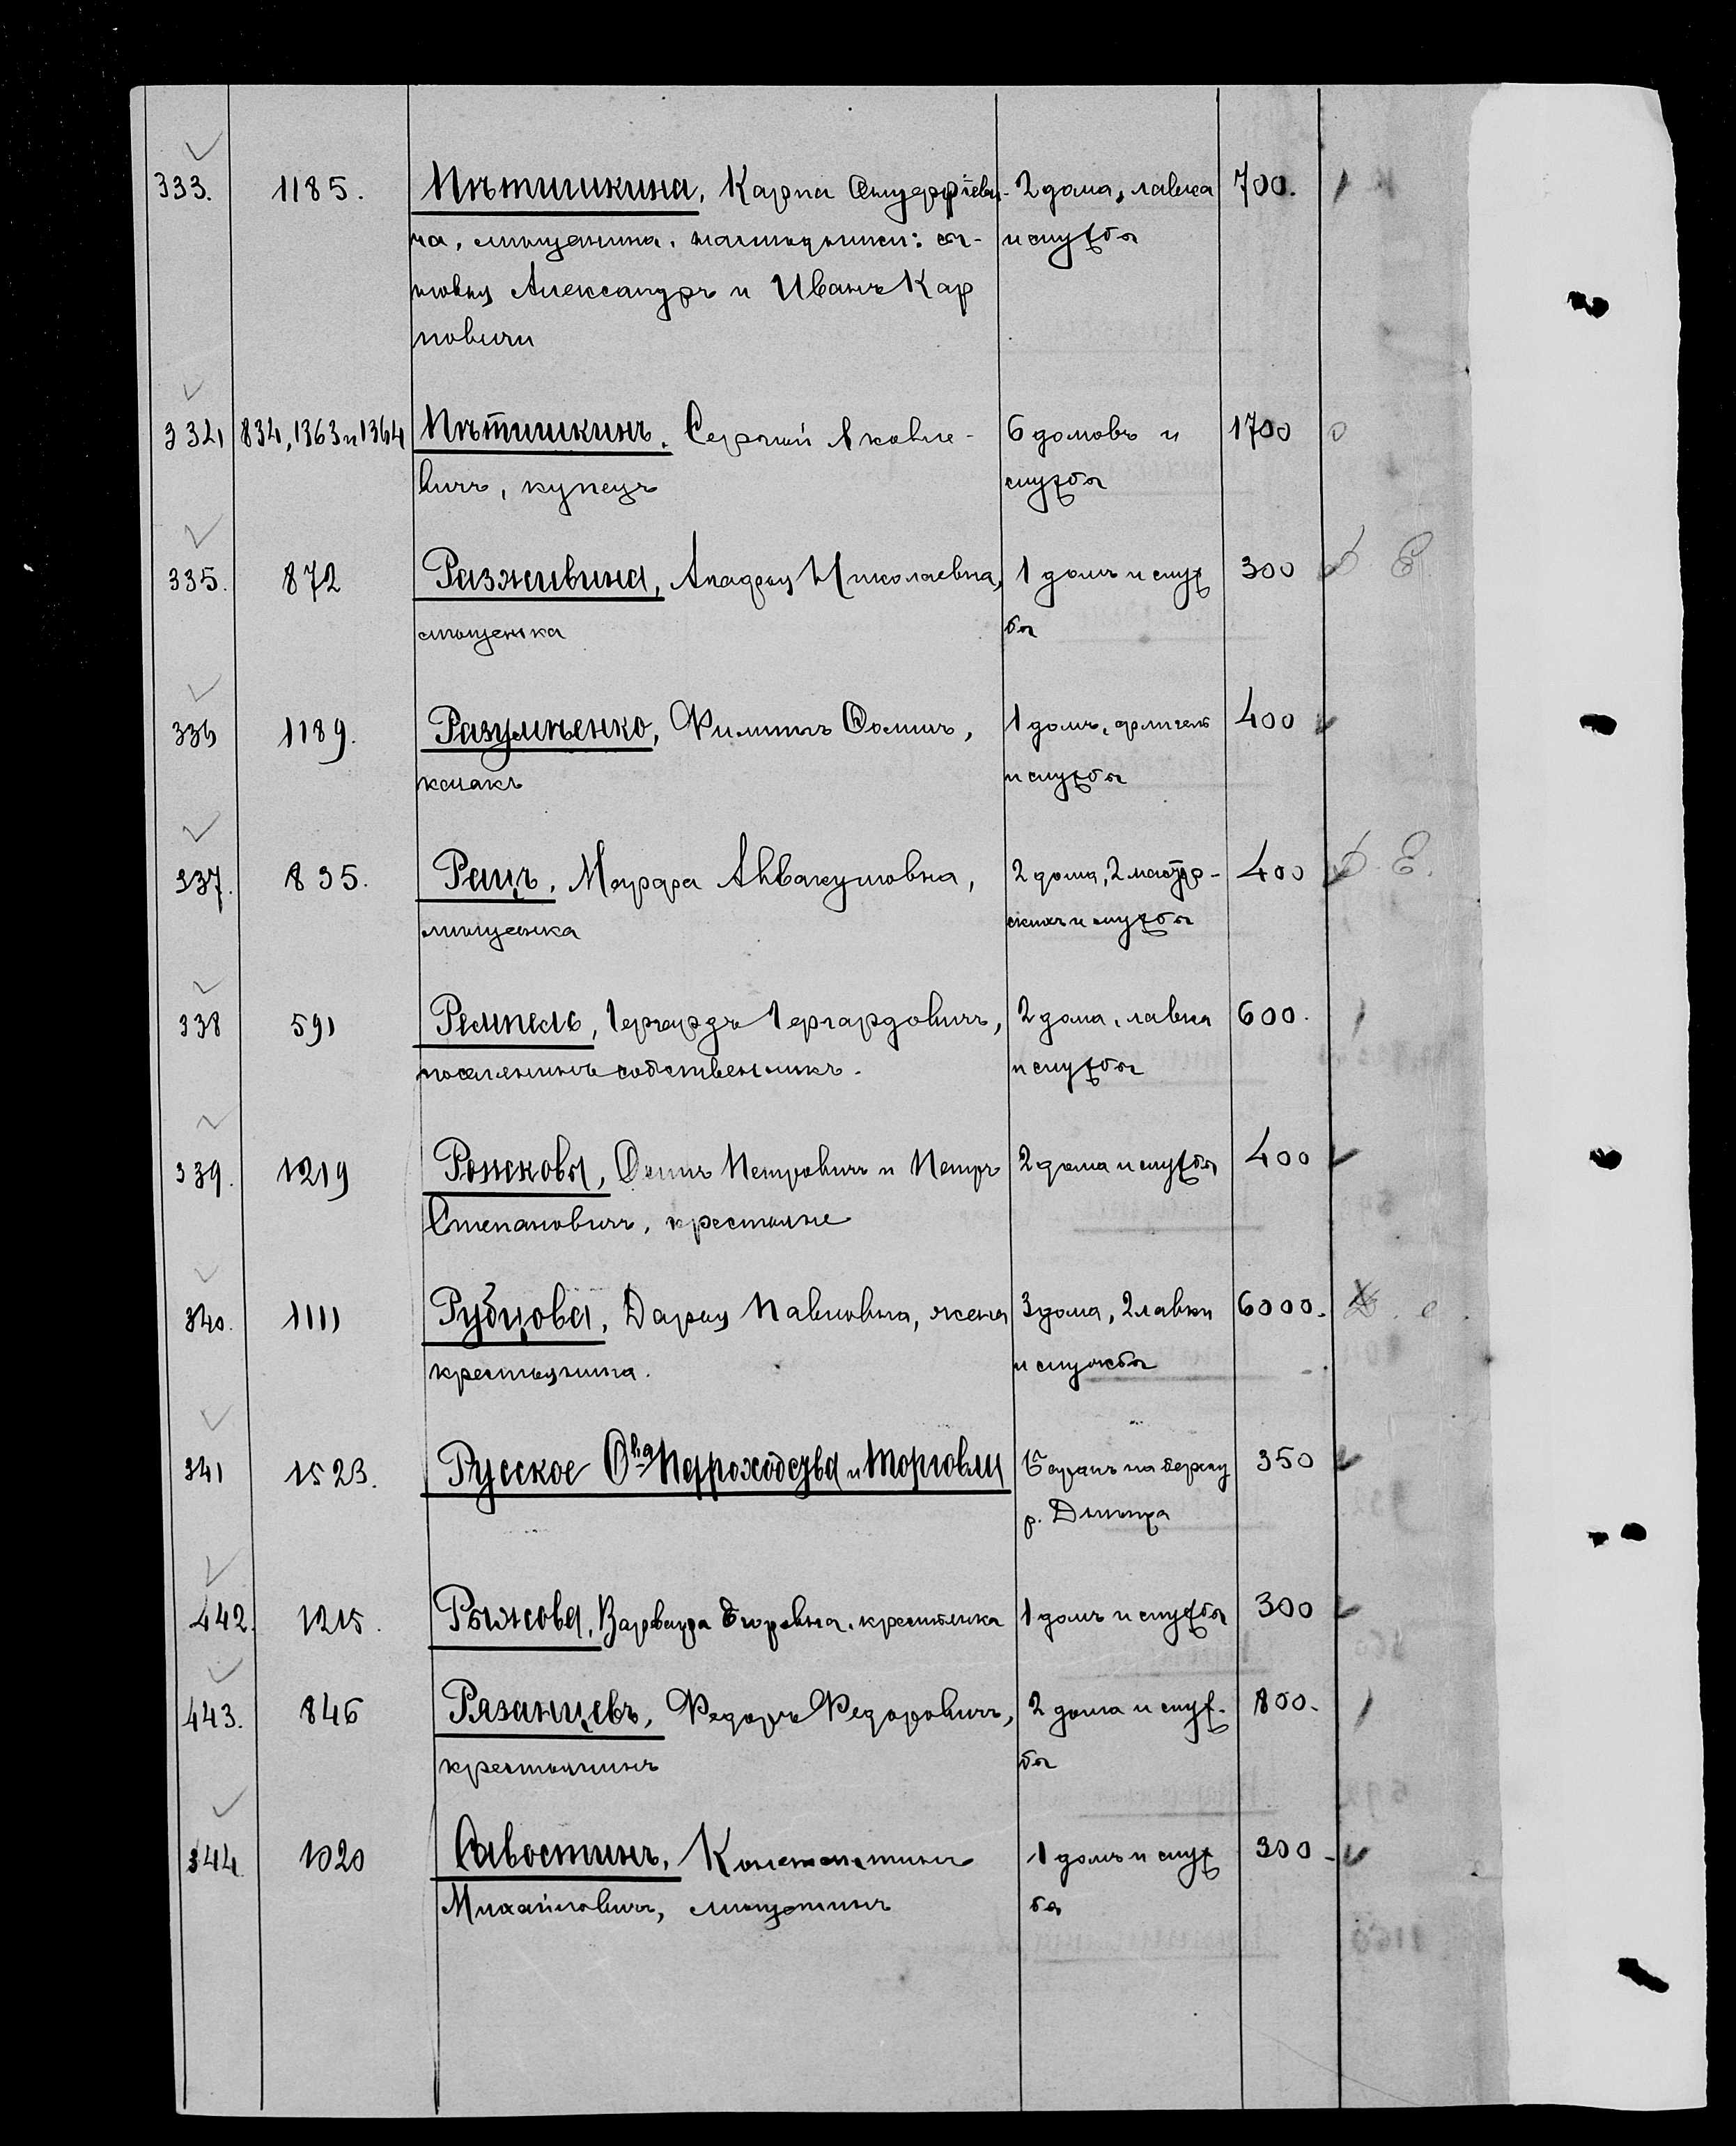 333. 1185. Пѣтишкина, Карпа Онуфріеви- 2 дома, лавка 700.
ча, мѣщанина, наслѣдники: сы- и службы
новья Александръ и Иванъ Кар
повичи
334 834, 1363 и 1364 Пѣтишкинъ, Сергѣй Яковле- 6 домовъ и 1700
вичъ, купецъ службы
335. 872 Разживина, Агафья Николаевна, 1 домъ и служ 300
мѣщанка бы
336 1189. Разумѣенко, Филиппъ Фомичъ, 1 домъ, флигель 400
козакъ и службы
337. 835. Рацъ, Марфа Аввакумовна, 2 дома, 2 мастер- 400
мѣщанка скихъ и службы
338 591 Ремпель, Гергардъ Гергардовичъ, 2 дома, лавка 600.
поселянинъ собственникъ. и службы
339. 1219 Рожковы, Осипъ Петровичъ и Петръ 2 дома и службы 400
Степановичъ, крестьяне
340. 1111 Рубцова, Дарья Павловна, жена 3 дома, 2 лавки 6000.
крестьянина. и службы
341 1523. Русское О-ва Пароходства и Торговли на берегу 350
р. Днѣпра
442. 1215. Рыжова, Варвара Егоровна, крестьянка 1 домъ и службы 300
443. 846 Рязанцевъ, Федоръ Федоровичъ, 2 дома и служ- 800.
крестьянинъ бы
344. 1020 Савостинъ, Константинъ 1 домъ и служ 300
Михайловичъ, мѣщанинъ бы